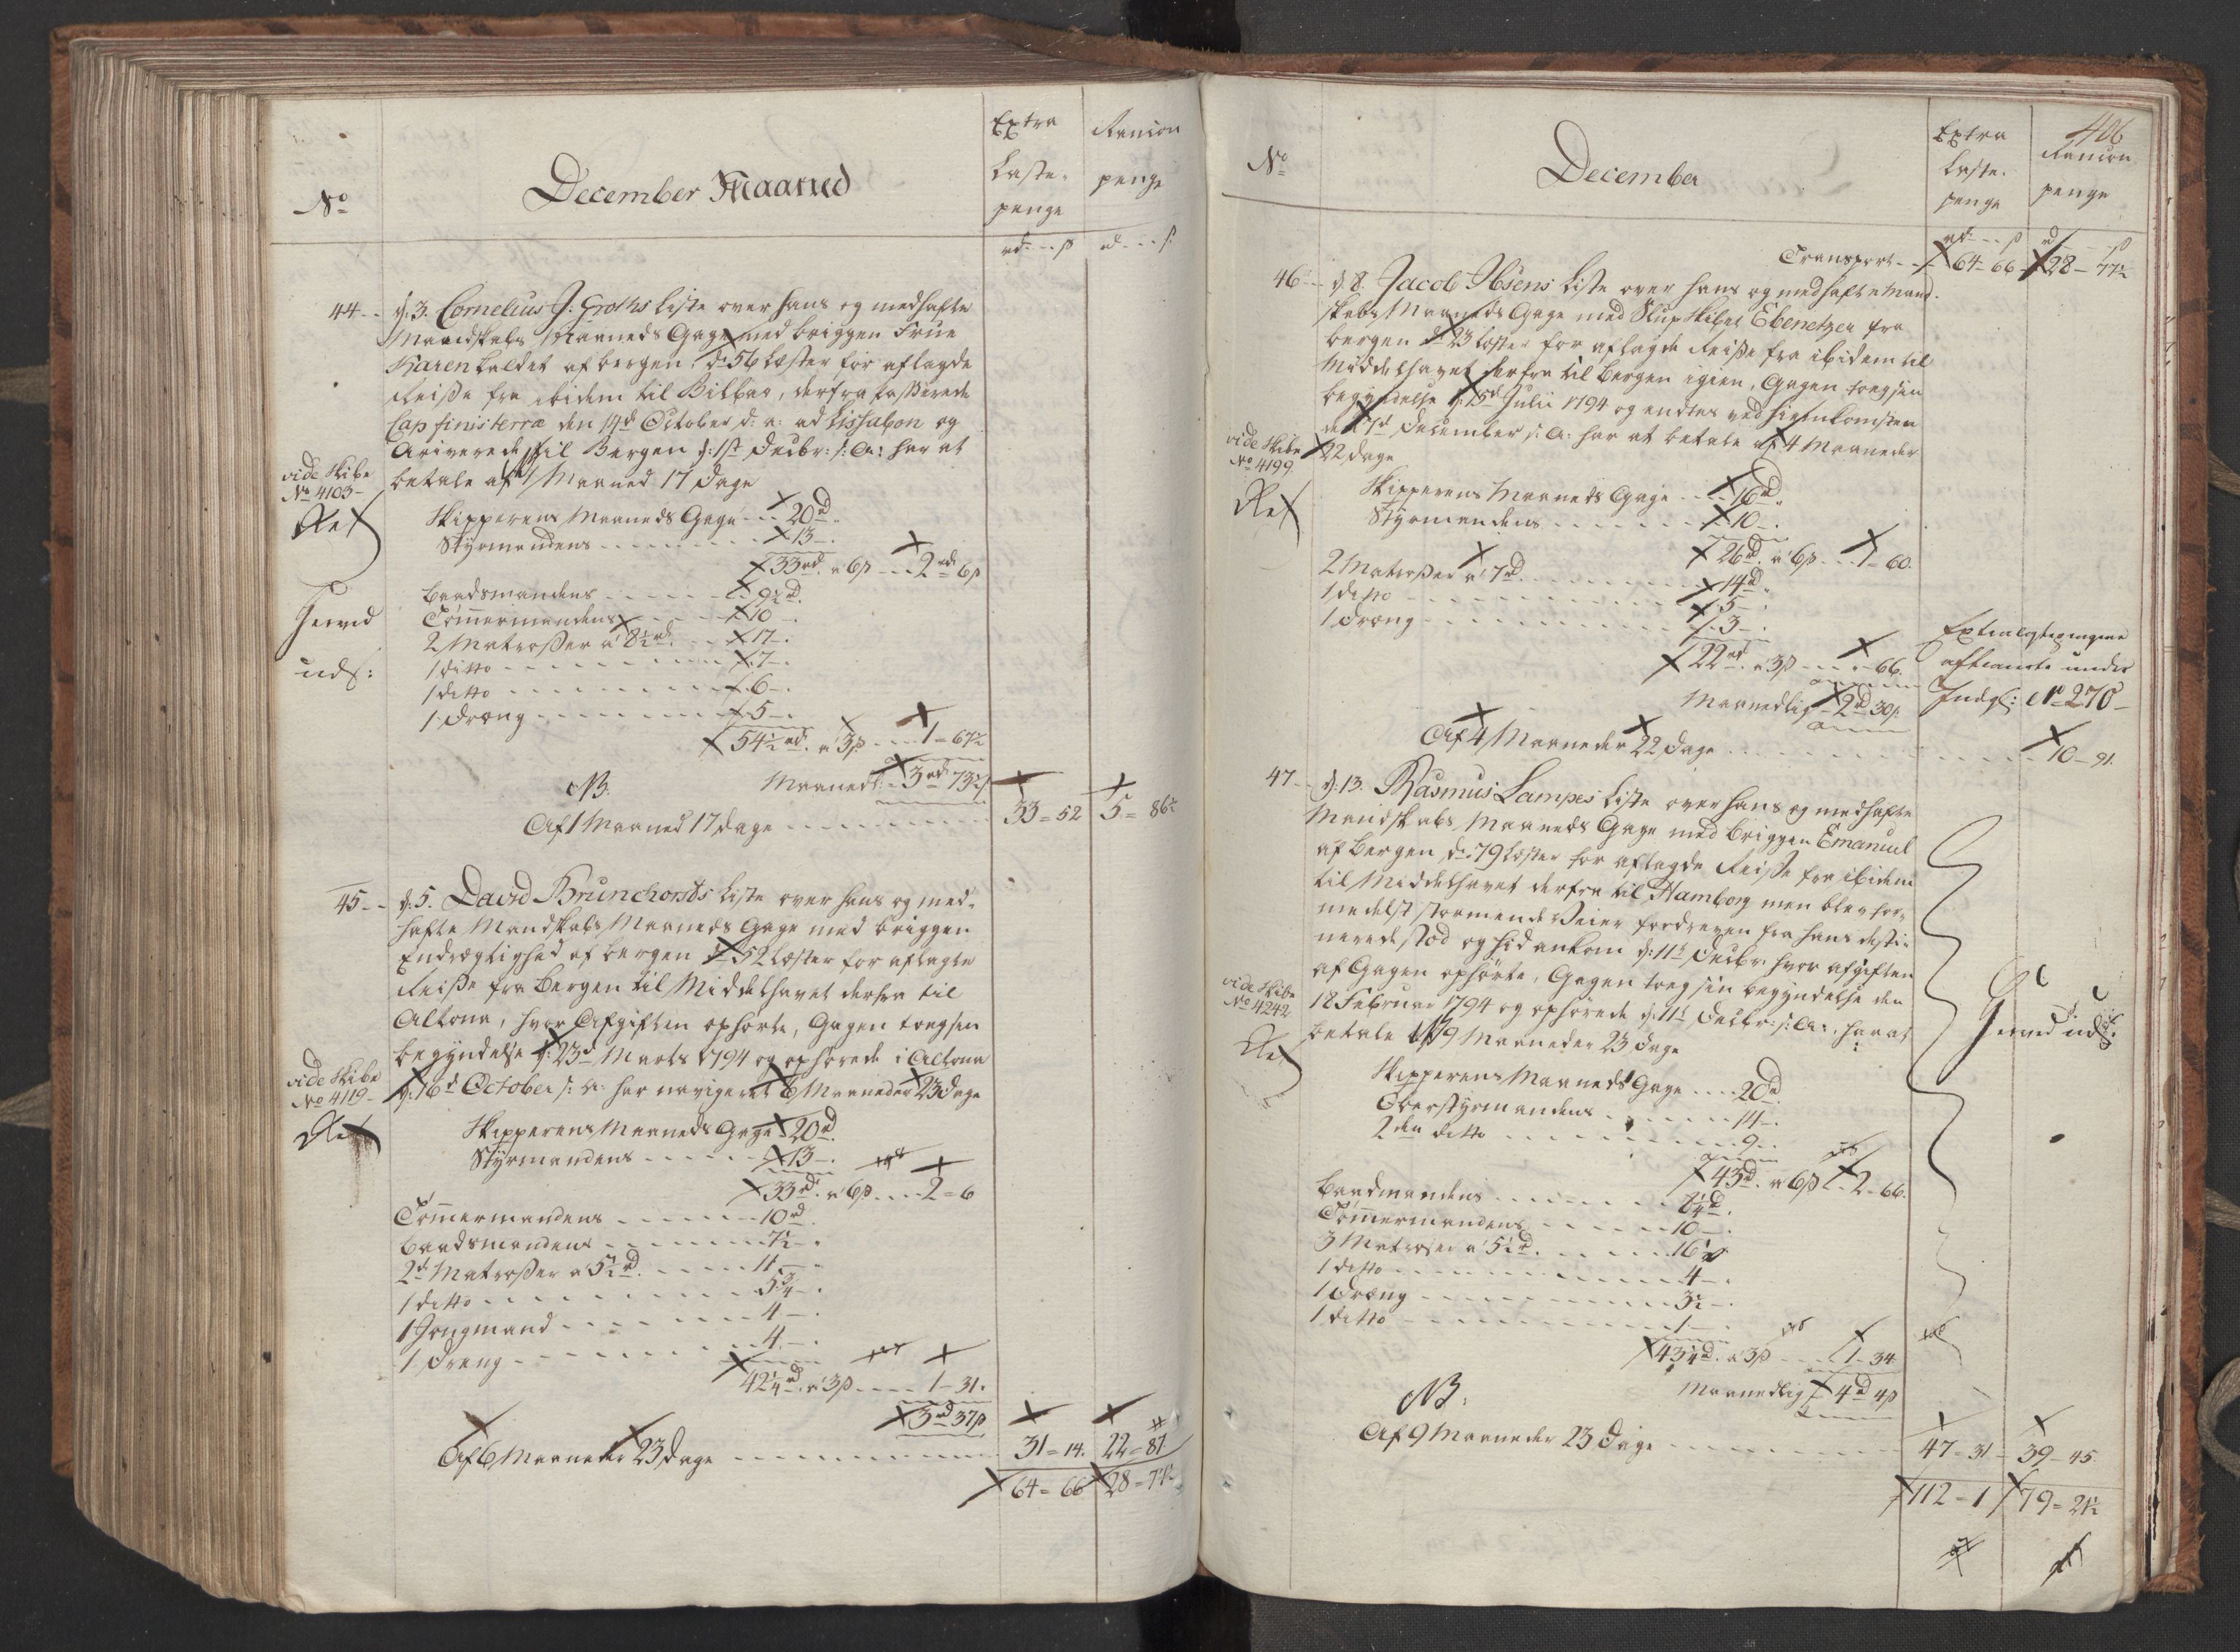 Extra
Laste-
penge
Rancion
penge
No
December Maaned
rd: -- ß rd -- ß
44 - d: 3. Cornelius J: Groths Liste over hans og medhafte
Mandskabs Maaneds Gage med briggen Frue
Karen kaldet af bergen, dr: 56 Læster for aflagde
Reiße fra ibidem til Bilbao, derfra paßerede
Cap finisterræ den 14d October d: a: ad Lissabon og
Ariverede til Bergen d: 1st Decbr: s: a: har at
betale af 1 Maaned 17 dage
vide Skibs
No 4103 -
Ret
Skipperens Maaneds Gage - - - 20rd
Styrmandens - - - - 13 -
33rd. a 6ß - - - 2rd 6ß
Baadsmandens - - - - 9½rd.
Tömmermandens - - - 10 -
2 Matroßer a 8½rd. - - - 17 -
1 ditto - - - - 7 -
1 ditto - - - - 6 -
1 Dreng - - - - 5 -
54½rd. a 3ß - - - 1 = 67½
NB. Maanedl: - 3rd 73½ß
Af 1 Maaned 17 dage - - - - 33 = 52 5 = 86½
45 - d: 5. David Brunchorsts Liste over hans og med-
hafte Mandskabs Maaneds Gage med briggen
Endrægtighed af bergen dr: 52 Læster for aflagte
Reiße fra Bergen til Middelhavet derfra til
Altona, hvor Afgiften ophørte, Gagen tog sin
begyndelse d: 23d Marts 1794 og ophørede i Altona
d: 16d October s: a: har navigeret 6 Maaneder 23 dage
vide Skibs
No 4119 -
Ret
Skipperens Maaneds Gage 20rd.
Styrmandens - - - - 13 -
33rd. a 6ß - - - 2 = 6
Tömmermandens - - - - 10rd.
Baadsmandens - - - - 7½ -
2d Matroßer a 5½rd. - - - 11 -
1 ditto - - - - 5¾ -
1 Jongmand - - - - 4 -
1 Dreng - - - - 4 -
42¼rd. a 3ß - - - - 1 - 31.
3rd 37ß
Af 6 Maaneder 23 dage - - - - 31 = 14. 22 = 87
64 = 66 28 = 77½
406
No
December
Extra
Laste-
penge
Rancion
penge
rd: -- ß rd -- ß
Transport - - 64 - 66 28 - 77½
46 - d 8. Jacob Ibsens Liste over hans og medhafte Mand-
skabs Maaneds Gage med Slup Skibet Ebenetzer fra
bergen dr 23 Læster for aflagde Reiße fra ibidem til
Middelhavet derfra til bergen igien, Gagen tog sin
begyndelse d: 15d Julii 1794 og endtes ved hiemkomsten
den 7d December s: a: har at betale af 4 Maaneder
22 dage
vide Skibs
No 4199.
Ret
Skipperens Maaneds Gage - - - 16rd.
Styrmandens - - - - 10 -
26rd. a 6ß - - - 1 - 60.
2 Matroßer a 7rd. - - - - 14rd.
1 ditto - - - - 5 -
1 Dreng - - - - 3 -
22rd. a 3ß - - - - 66.
Maanedlig - 2rd 30ß.
No 270 -
Af 4 Maaneder 22 dage - - - - 10 - 91.
47 - d: 13. Rasmus Lampes Liste over hans og medhafte
Mandskabs Maaneds Gage med briggen Emanuel
af Bergen dr: 79 Læster for aflagde Reiße fra ibidem
til Middelhavet derfra til Hamborg men blev for-
medelst stormende Veier fordreven fra hans desti-
nerede stæd og hid ankom d: 11t Decbr: hvor afgiften
af Gagen ophørte, Gagen tog sin begyndelse den
18 Februar 1794 og ophørede d: 11t Decbr: s: a:, har at
betale af 9 Maaneder 23 dage
vide Skibs
No 4242
Ret
Skipperens Maaneds Gage - - - 20rd.
Overstyrmandens - - - - 14 -
2den ditto - - - - 9 -
43rd. a 6ß - 2 - 66.
Baadmandens - - - - 8¼rd.
Tömmermandens - - - - 10 -
3 Matroser a 5½rd. - - - 16½
1 ditto - - - - 4 -
1 Dreng - - - - 3½ -
1 ditto - - - - 1 -
43¼rd. a 3ß - - - 1 - 34
NB: Maanedlig 4rd 4ß
Af 9 Maaneder 23 dage - - - - 47 - 31 - 39 - 45.
112 - 1 79 = 21½